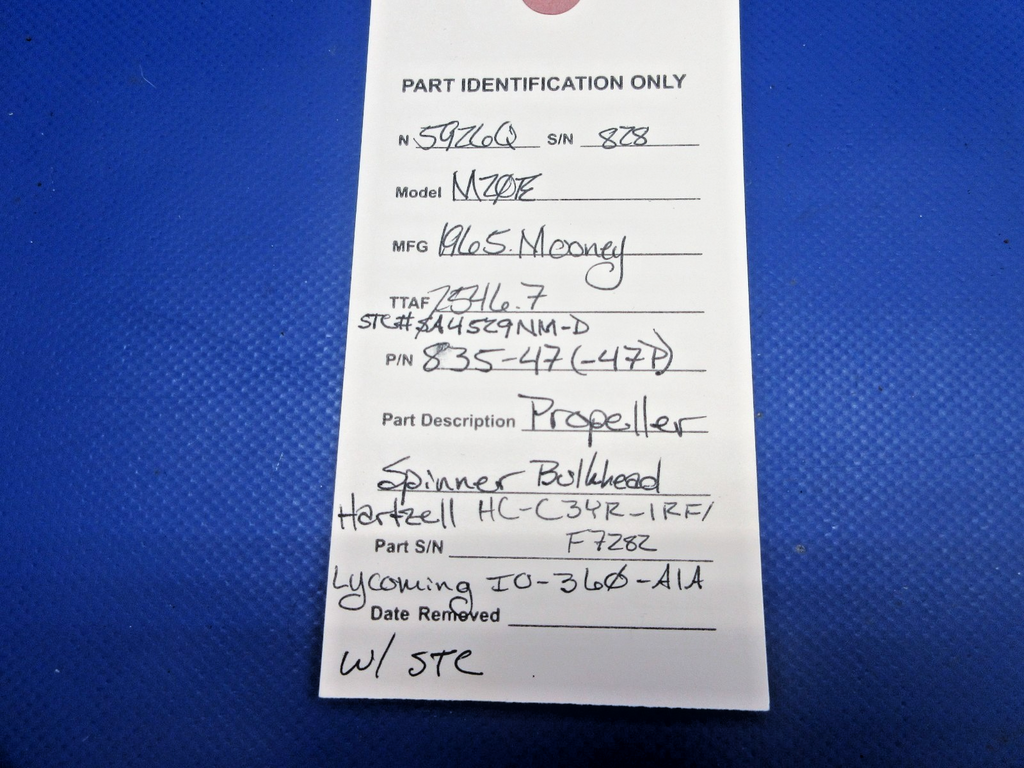 PART IDENTIFICATION ONLY
N 5926Q S/N 828
Model M20E
MFG 1965 Mooney
TTAF 2546.7
STC# SA4529NM-D
P/N 835-47 (-47P)
Part Description Propeller
Spinner Bulkhead
Hartzell HC-C3YR-1RF/
Part S/N F7282
Lycoming IO-360-A1A
Date Removed
W/ STC